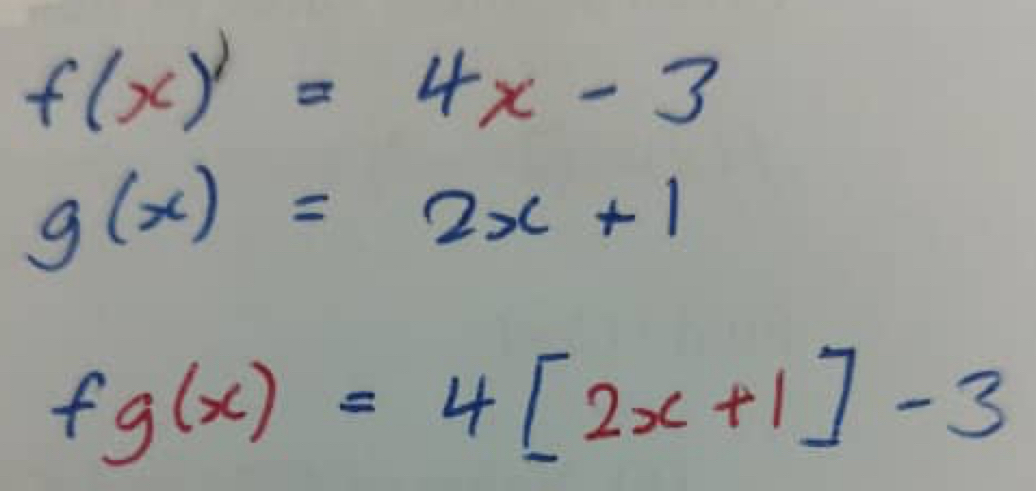 f(x) = 4x - 3
g(x) = 2x + 1
fg(x) = 4[2x+1] - 3